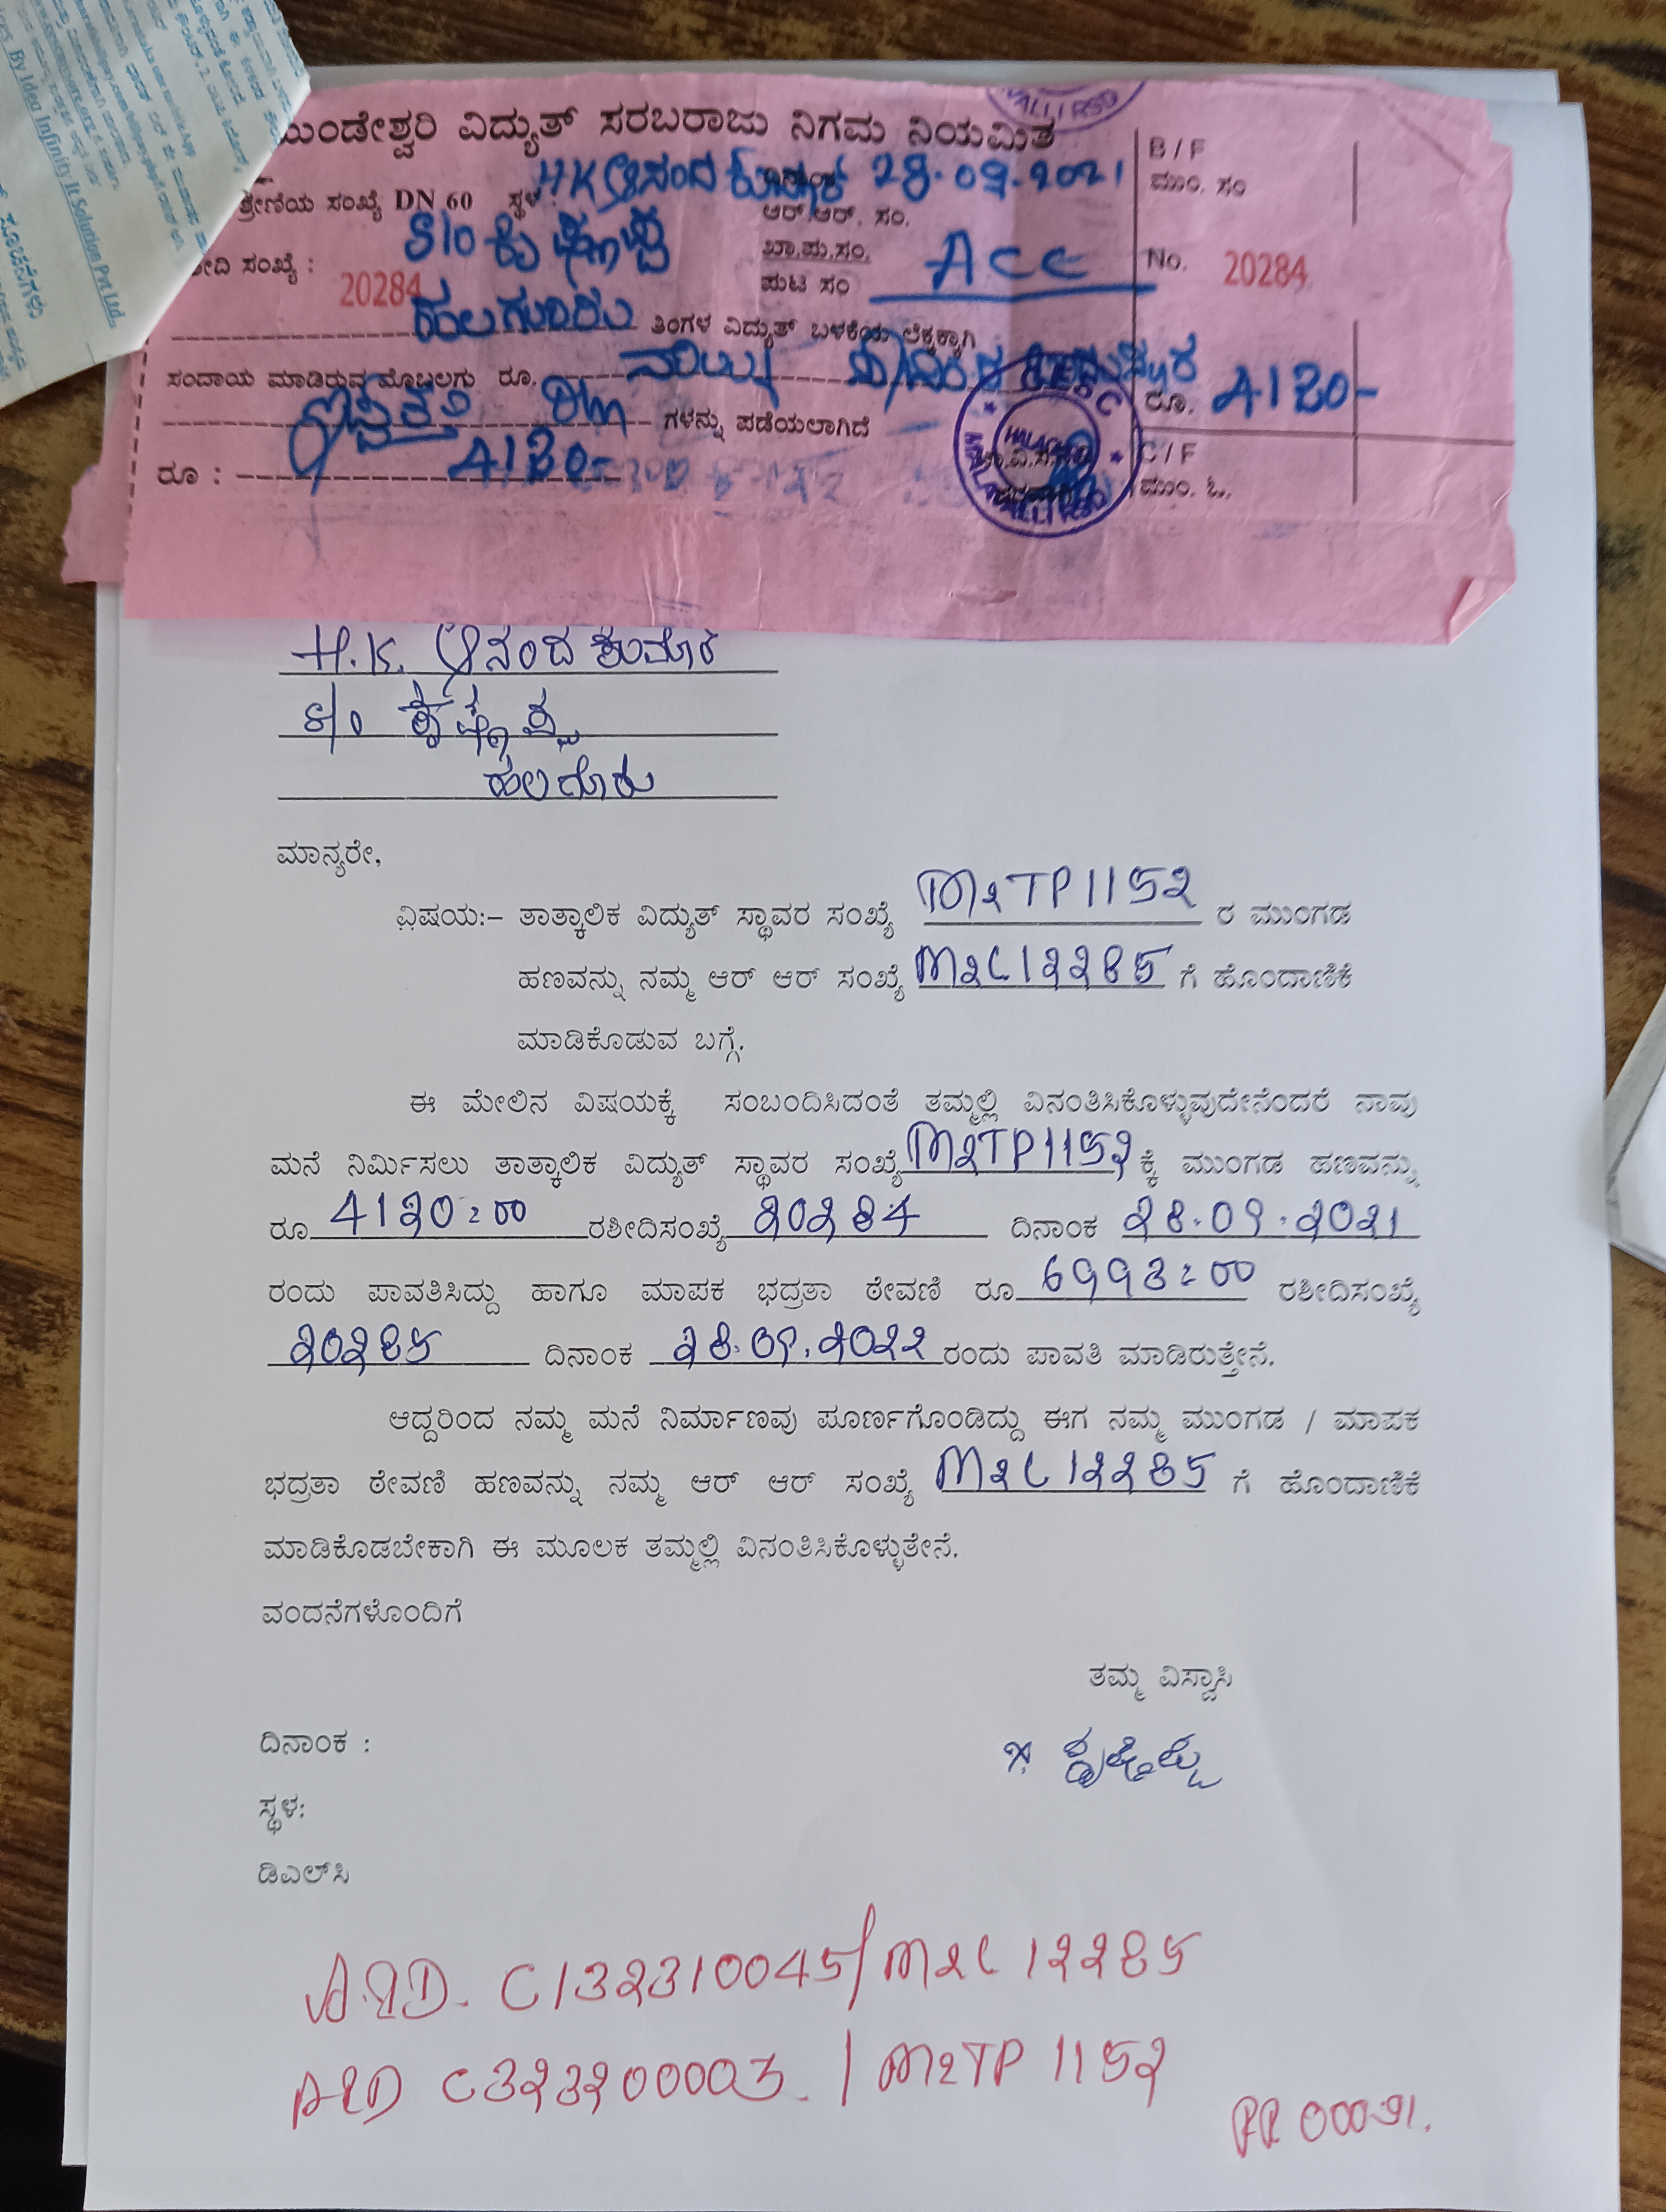 By Ideo Infinity It Solution Pvt Ltd.
ಸೂಚನೆಗಳು
ಮುಂಡೇಶ್ವರಿ ವಿದ್ಯುತ್ ಸರಬರಾಜು ನಿಗಮ ನಿಯಮಿತ
ಶ್ರೇಣಿಯ ಸಂಖ್ಯೆ DN 60 ಸ್ಥಳ : HK ಆನಂದ ಕುಮಾರ 28.09.2021
B / F
ಮುಂ. ಸಂ
ಆರ್.ಆರ್. ಸಂ.
S/o ಕೃಷ್ಣಪ್ಪ
ಖಾ.ಪು.ಸಂ.
ಪುಟ ಸಂ
ACC
ಸಂಖ್ಯೆ : 20284
No. 20284
ಹಲಗೂರು ತಿಂಗಳ ವಿದ್ಯುತ್ ಬಳಕೆಯ ಲೆಕ್ಕಕ್ಕಾಗಿ
ಸಂದಾಯ ಮಾಡಿರುವ ಮೊಬಲಗು ರೂ. ನಾಲ್ಕು ಸಾವಿರದ
ರೂ. 4120-
ಇಪ್ಪತ್ತು ಗಳನ್ನು ಪಡೆಯಲಾಗಿದೆ
ರೂ : 4120-
C / F
ಮುಂ. ಒ.
H.K. ಆನಂದ ಕುಮಾರ
S/o ಕೃಷ್ಣಪ್ಪ
ಹಲಗೂರು
ಮಾನ್ಯರೇ,
ವಿಷಯ:- ತಾತ್ಕಾಲಿಕ ವಿದ್ಯುತ್ ಸ್ಥಾವರ ಸಂಖ್ಯೆ M2TP1152 ರ ಮುಂಗಡ
ಹಣವನ್ನು ನಮ್ಮ ಆರ್ ಆರ್ ಸಂಖ್ಯೆ M2L12285 ಗೆ ಹೊಂದಾಣಿಕೆ
ಮಾಡಿಕೊಡುವ ಬಗ್ಗೆ.
ಈ ಮೇಲಿನ ವಿಷಯಕ್ಕೆ ಸಂಬಂದಿಸಿದಂತೆ ತಮ್ಮಲ್ಲಿ ವಿನಂತಿಸಿಕೊಳ್ಳುವುದೇನೆಂದರೆ ನಾವು
ಮನೆ ನಿರ್ಮಿಸಲು ತಾತ್ಕಾಲಿಕ ವಿದ್ಯುತ್ ಸ್ಥಾವರ ಸಂಖ್ಯೆ M2TP1152 ಕ್ಕೆ ಮುಂಗಡ ಹಣವನ್ನು
ರೂ 4120=00 ರಶೀದಿಸಂಖ್ಯೆ 20284 ದಿನಾಂಕ 28.09.2021
ರಂದು ಪಾವತಿಸಿದ್ದು ಹಾಗೂ ಮಾಪಕ ಭದ್ರತಾ ಠೇವಣಿ ರೂ 6993=00 ರಶೀದಿಸಂಖ್ಯೆ
20285 ದಿನಾಂಕ 28.09.2022 ರಂದು ಪಾವತಿ ಮಾಡಿರುತ್ತೇನೆ.
ಆದ್ದರಿಂದ ನಮ್ಮ ಮನೆ ನಿರ್ಮಾಣವು ಪೂರ್ಣಗೊಂಡಿದ್ದು ಈಗ ನಮ್ಮ ಮುಂಗಡ / ಮಾಪಕ
ಭದ್ರತಾ ಠೇವಣಿ ಹಣವನ್ನು ನಮ್ಮ ಆರ್ ಆರ್ ಸಂಖ್ಯೆ M2L12285 ಗೆ ಹೊಂದಾಣಿಕೆ
ಮಾಡಿಕೊಡಬೇಕಾಗಿ ಈ ಮೂಲಕ ತಮ್ಮಲ್ಲಿ ವಿನಂತಿಸಿಕೊಳ್ಳುತೇನೆ.
ವಂದನೆಗಳೊಂದಿಗೆ
ತಮ್ಮ ವಿಸ್ವಾಸಿ
ದಿನಾಂಕ :
ಸ್ಥಳ:
ಡಿಎಲ್‌ಸಿ
C132310045/M2L12285
C323200003. / M2TP 1152
RR 00091.